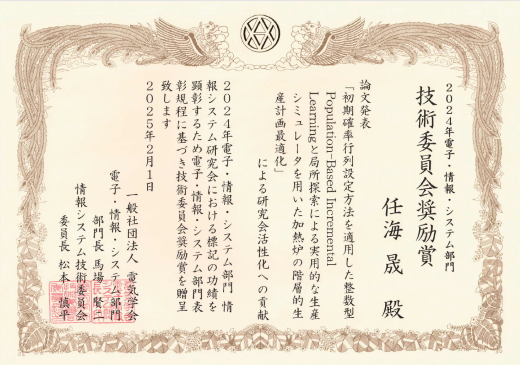 2024年電子・情報・システム部門
技術委員会奨励賞
任海 晟 殿
論文発表
「初期確率行列設定方法を適用した整数型
Population-Based Incremental
Learningと局所探索による実用的な生産
シミュレータを用いた加熱炉の階層的生
産計画最適化」
による研究会活性化への貢献
2024年電子・情報・システム部門 情
報システム研究会における標記の功績を
顕彰するため電子・情報・システム部門表
彰規程に基づき技術委員会奨励賞を贈呈
致します
2025年2月1日
一般社団法人 電気学会
電子・情報・システム部門
部門長 馬場 賢二
情報システム技術委員会
委員長 松本 慎平